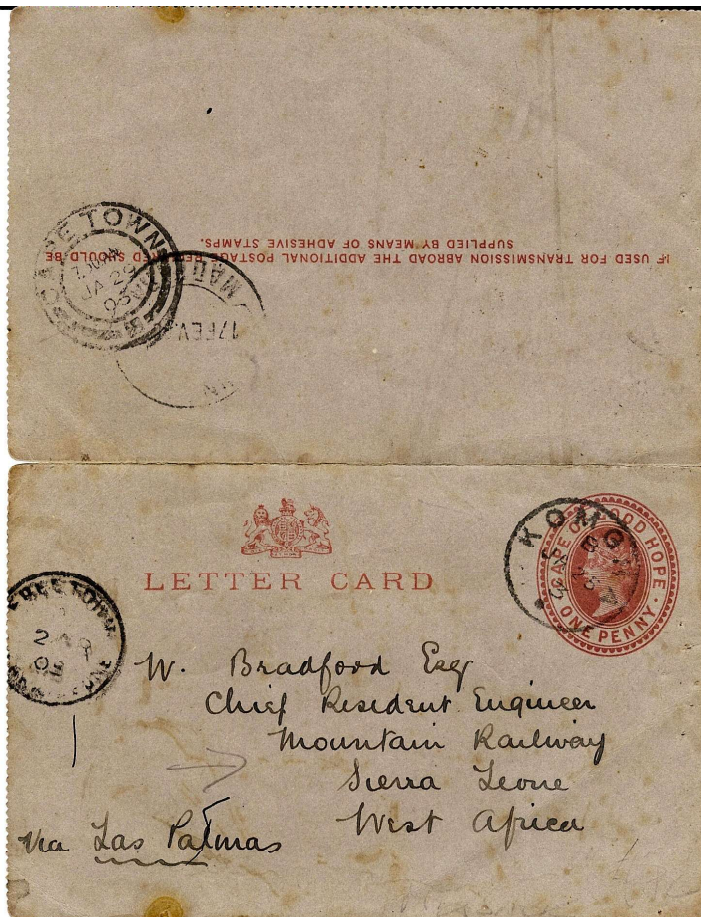 IF USED FOR TRANSMISSION ABROAD THE ADDITIONAL POSTAGE REQUIRED SHOULD BE
SUPPLIED BY MEANS OF ADHESIVE STAMPS.
CAPE TOWN
JA 29
03
17 FEV
LETTER CARD
KOMGHA
CAPE OF GOOD HOPE
ONE PENNY
FREETOWN
W. Bradford Esq
Chief Resident Engineer
Mountain Railway
Sierra Leone
West Africa
via Las Palmas